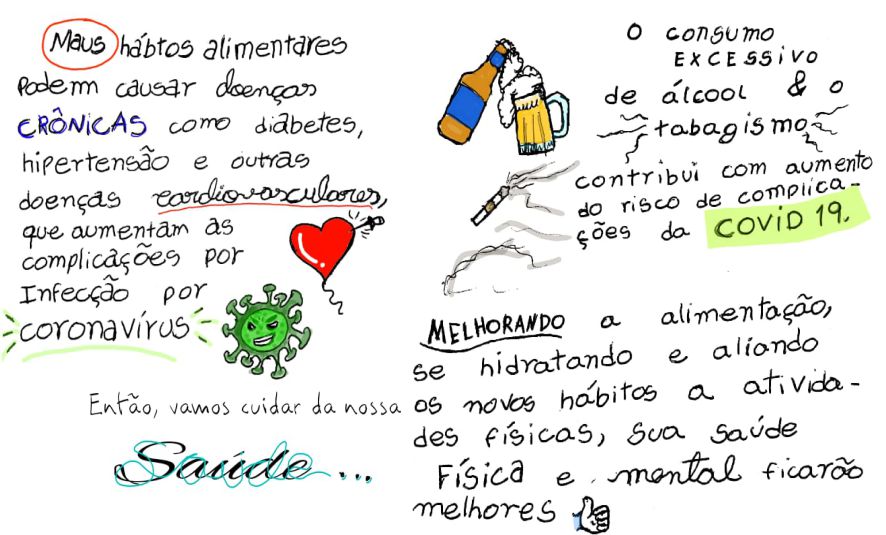 Maus hábtos alimentares
Podem causar doenças
CRÔNICAS como diabetes,
hipertensão e outras
doenças cardiovasculares,
que aumentam as
complicações por
Infecção por
coronavírus
O consumo
EXCESSIVO
de álcool & o
tabagismo
contribui com aumento
do risco de complica-
ções da COVID 19.
MELHORANDO a alimentação,
se hidratando e aliando
os novos hábitos a ativida-
des físicas, sua saúde
Física e mental ficarão
melhores
Então, vamos cuidar da nossa
Saúde...